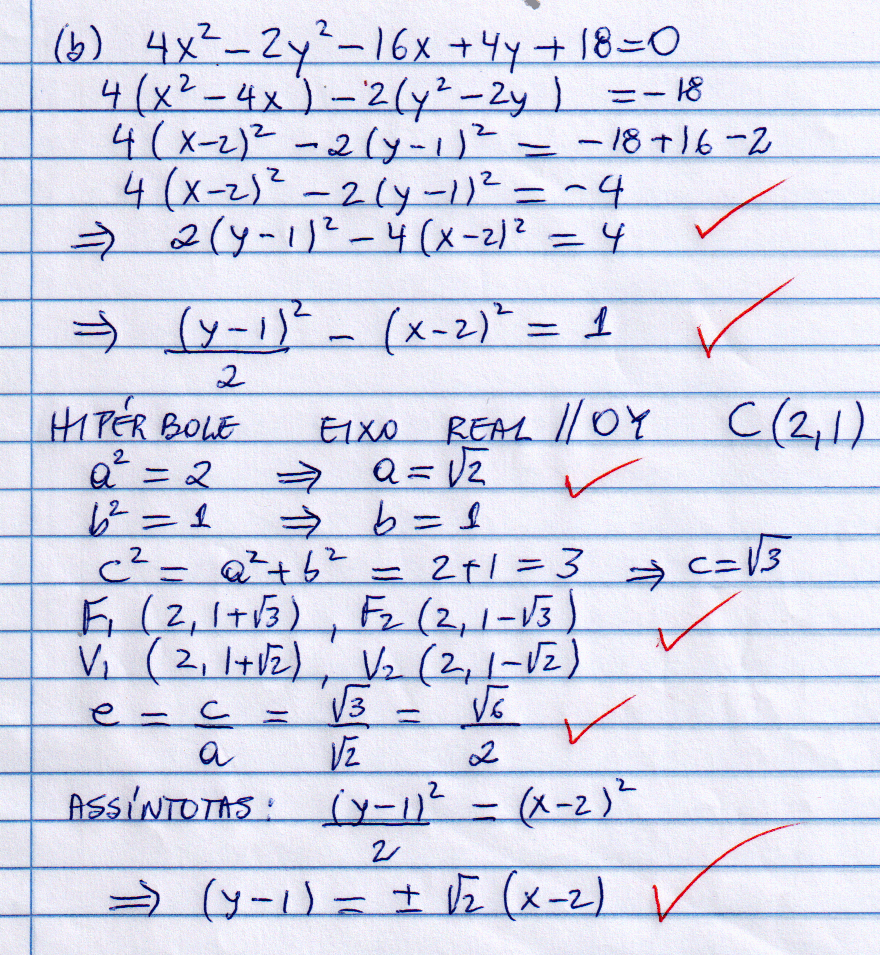 (b) 4x² - 2y² - 16x + 4y + 18 = 0
4(x² - 4x ) - 2(y² - 2y ) = -18
4(x-2)² - 2(y-1)² = -18 + 16 - 2
4(x-2)² - 2(y-1)² = -4
⇒ 2(y-1)² - 4(x-2)² = 4
⇒ (y-1)²/2 - (x-2)² = 1
HIPÉRBOLE EIXO REAL // OY C(2,1)
a² = 2 ⇒ a = √2
b² = 1 ⇒ b = 1
c² = a² + b² = 2+1 = 3 ⇒ c = √3
F₁ (2, 1+√3) , F₂ (2, 1-√3)
V₁ (2, 1+√2) , V₂ (2, 1-√2)
e = c/a = √3/√2 = √6/2
ASSÍNTOTAS: (y-1)²/2 = (x-2)²
⇒ (y-1) = ± √2 (x-2)